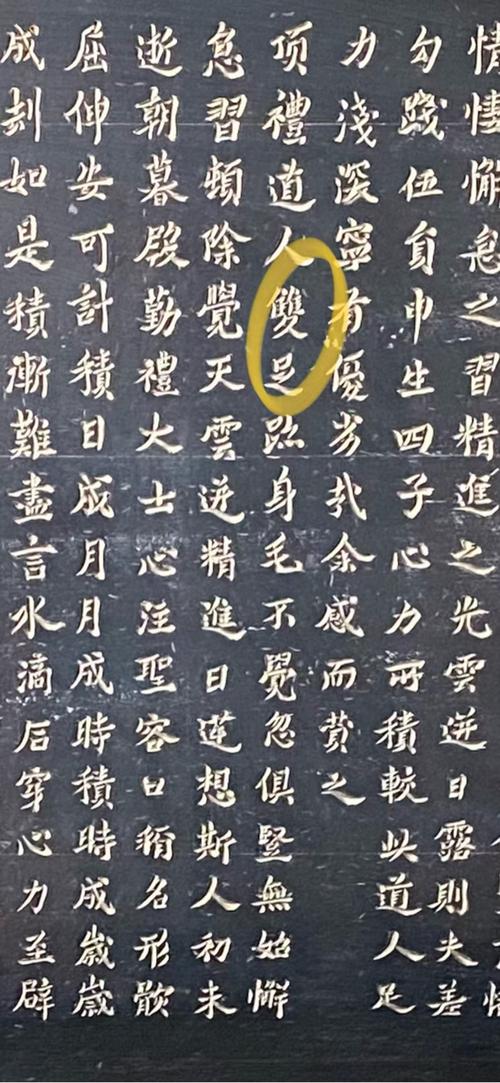 情悽懈怠之習精進之光雲迸日露則夫差
勾踐伍員申生四子心力所積較此道人足
力淺深寧有優劣哉余感而贊之
项禮道人雙足跡身毛不覺忽俱豎無始懈
怠習頓除覺天雲迸精進日逆想斯人初未
逝朝暮殷勤禮大士心注聖容口稱名形骸
屈伸安可計積日成月月成時積時成歲歲
成刦如是積漸難盡言水滴石穿心力至辟